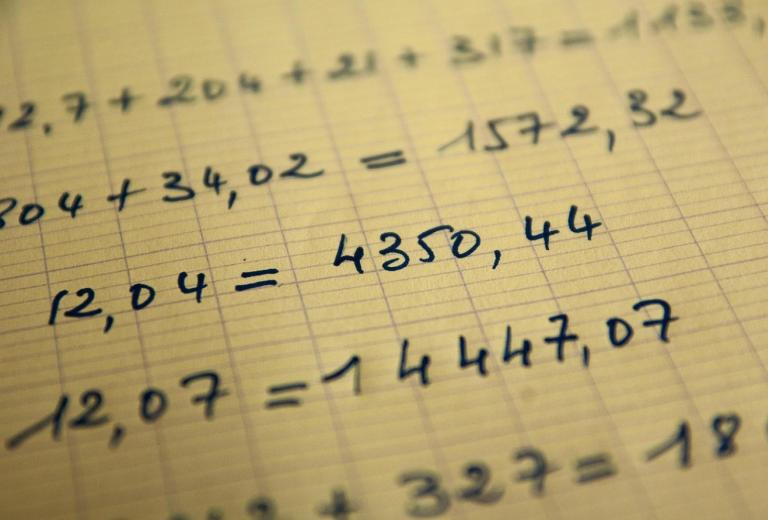 2,7 + 204 + 21 + 317 = 1133,
804 + 34,02 = 1572,32
12,04 = 4350,44
12,07 = 14447,07
+ 327 = 18